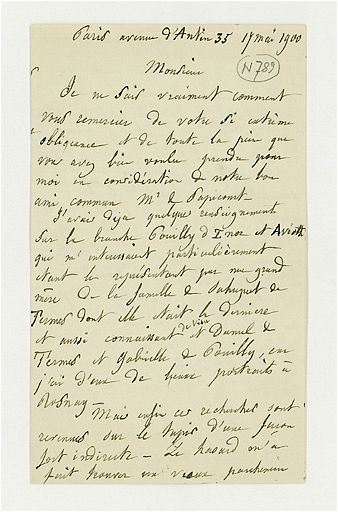 Paris avenue d'Antin 35 17 mai 1900
N 789
Monsieur
Je ne sais vraiment comment
vous remercier de votre si extrême
obligeance et de toute la peine que
vous avez bien voulu prendre pour
moi en considération de notre bon
ami commun Mr de
J'avais déja quelques renseignements
sur la branche Pouilly d'Inor et
qui m'intéressaient particulièrement
étant le représentant par ma grand
mère de la famille de Sahuguet de
Termes dont elle était la dernière
et aussi connaissant de vüe et Daniel de
Termes et Gabrielle de Pouilly, car
j'ai d'eux de beaux portraits à
Rosnay —
Mais enfin ces recherches sont
revenues sur le tapis d'une façon
fort indirecte — Le hasard m'a
fait trouver un vieux parchemin